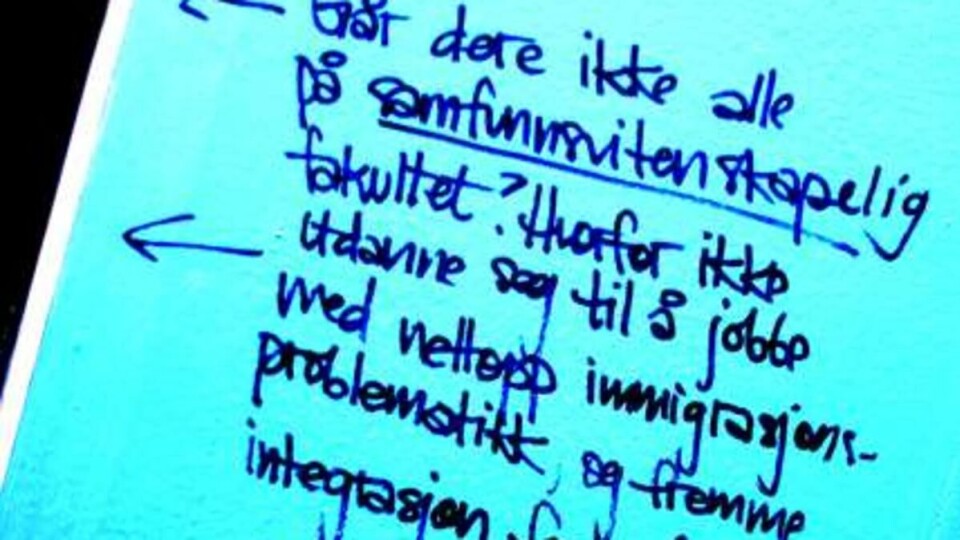 Går dere ikke alle
på samfunnsvitenskapelig
fakultet? Hvorfor ikke
utdanne seg til å jobbe
med nettopp immigrasjons-
problematikk og fremme
integrasjon